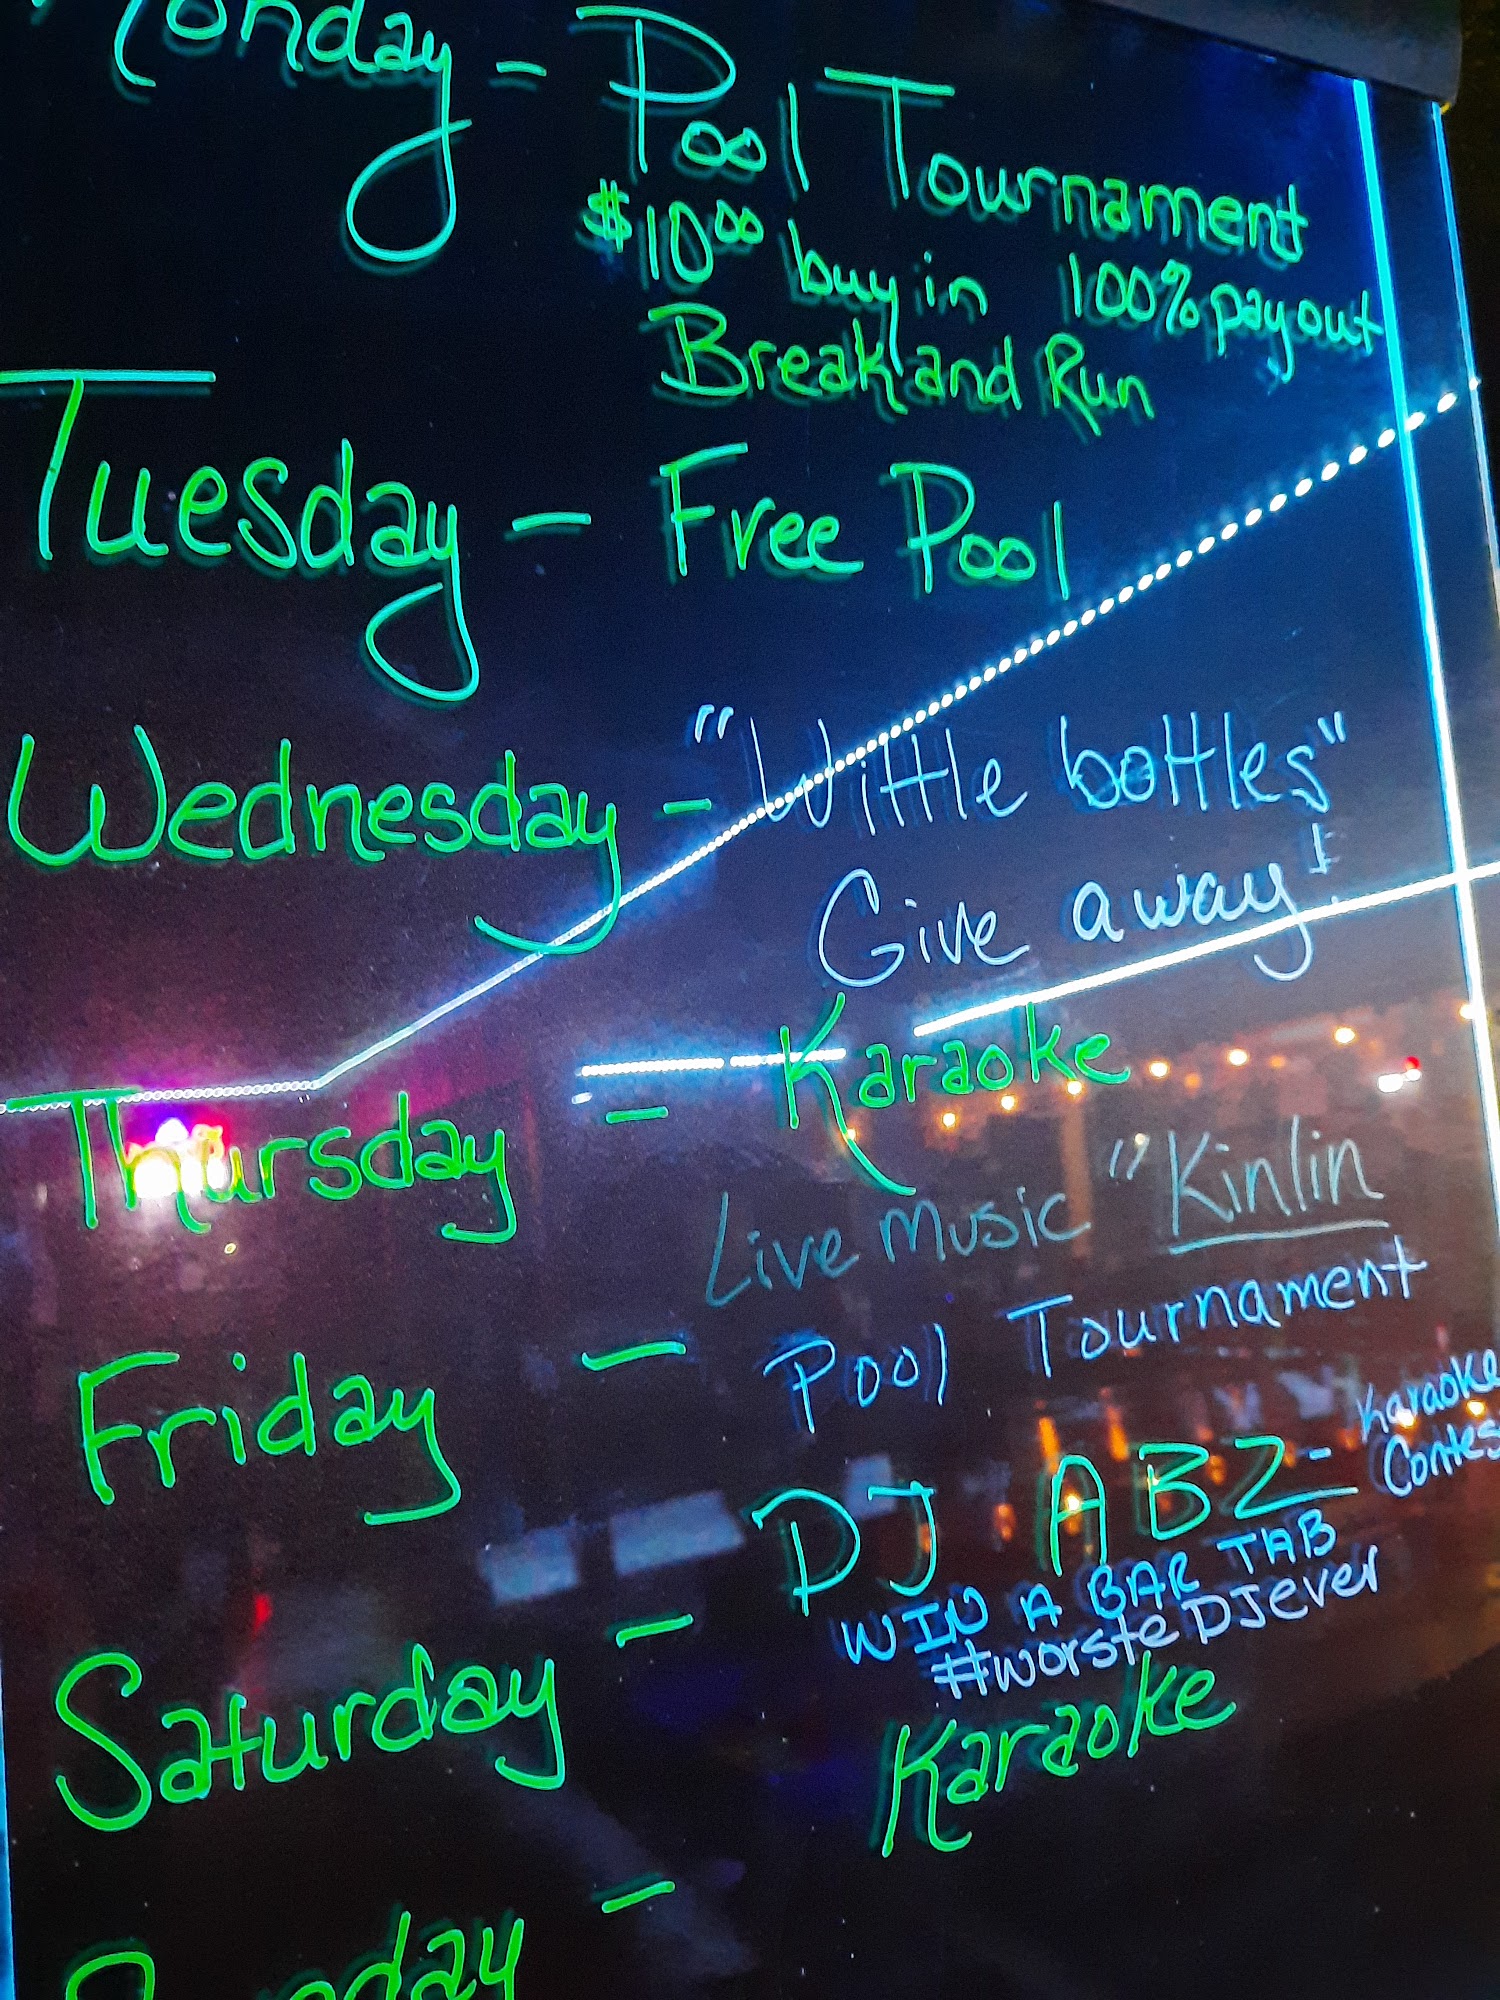 Monday - Pool Tournament
$10.00 buy in 100% payout
Break and Run
Tuesday - Free Pool
Wednesday - "Wittle bottles"
Give away!
Thursday - Karaoke
Live Music "Kinlin
Friday - Pool Tournament
DJ ABZ - Karaoke
Contes
WIN A BAR TAB
#worsteDJever
Saturday - Karaoke
Sunday -